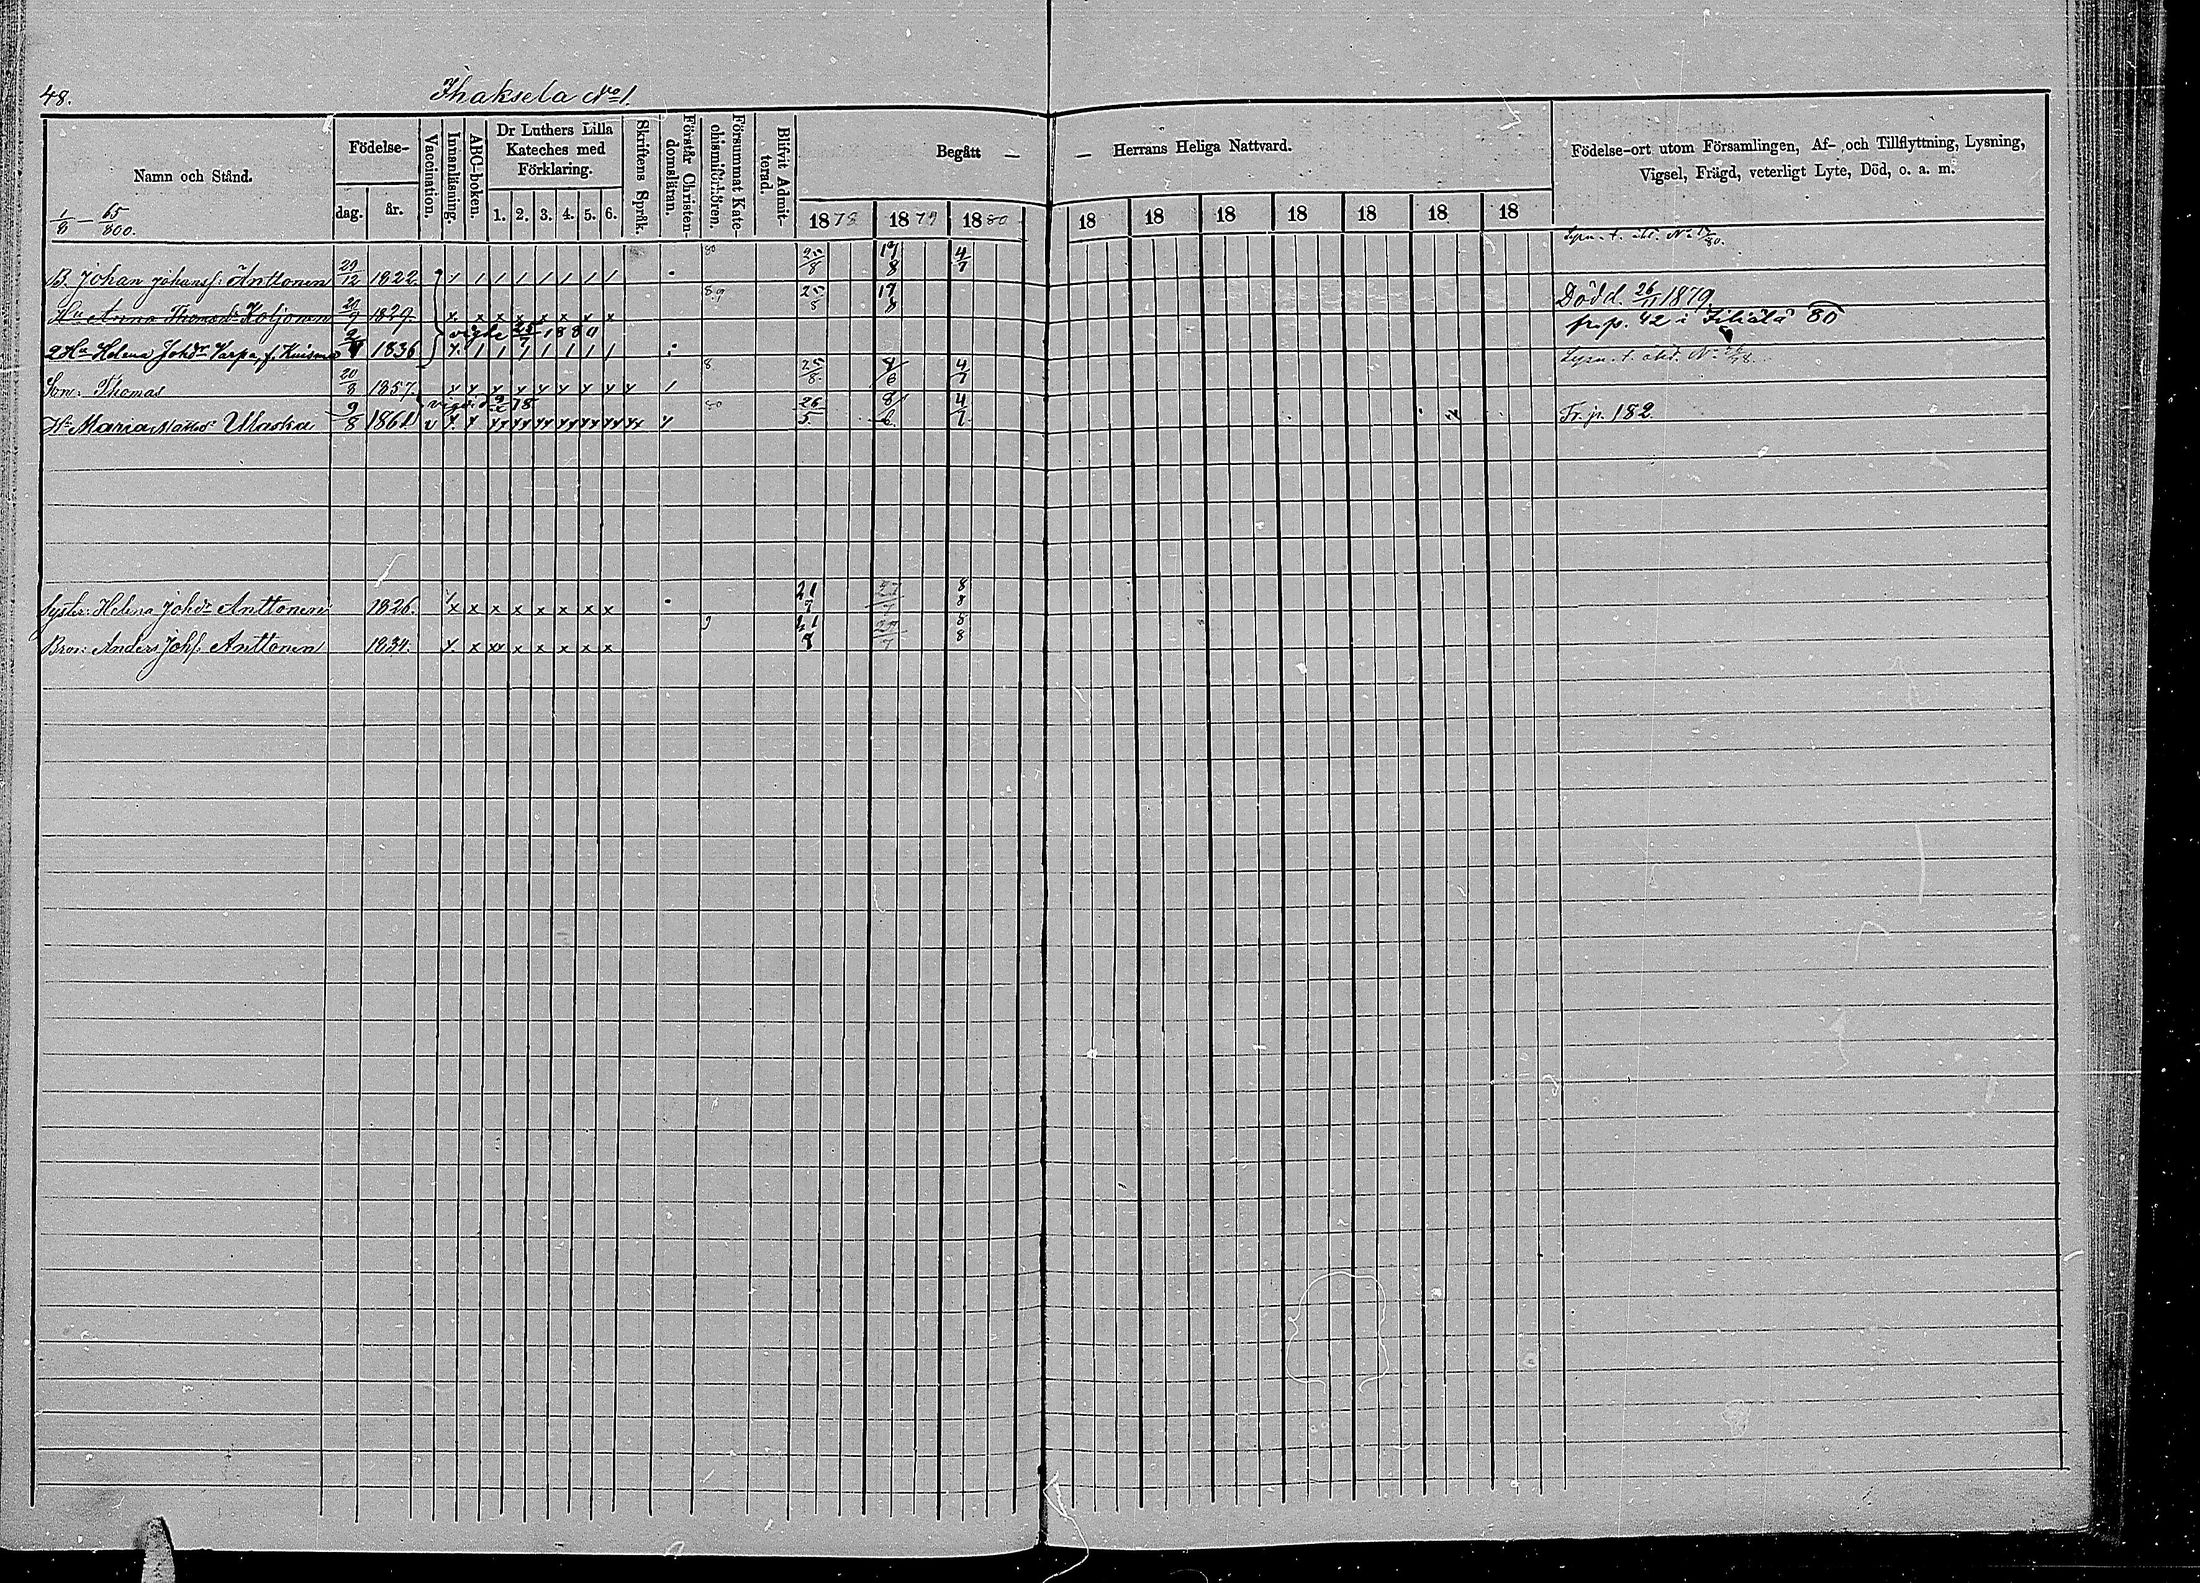 48. Ihaksela No 1.
Namn och Stånd. Födelse- dag. år. Vaccination. Innanläsning. ABC-boken. Dr Luthers Lilla Kateches med Förklaring. 1. 2. 3. 4. 5. 6. Skriftens Språk. Förstår Christendomsläran. Försummat Katechismiförhören. Blifvit Admitterad. Begått — — Herrans Heliga Nattvard. Födelse-ort utom Församlingen, Af- och Tillflyttning, Lysning, Vigsel, Frägd, veterligt Lyte, Död, o. a. m.
1/8 — 65/800. 1878 1879 1880 18 18 18 18 18 18 18
B. Johan Johansf: Anttonen 29/12 1822. / / / / / / / / 80 25/8 17/8 4/7
Hu Anna Thomasdr Koljonen 20/9 1829. x x x x x x x x 89 25/8 17/8 Död d. 26/11 1879
vigde 25/7 1880 fr. p. 42 i Filiälä 80
2 Hu Helena Johdr Varpa, f. Kuisma 1836 x / / / / / / /
Son: Thomas 20/8 1857. x x x x x x x x x / 8 25/8 8/6 4/7
vigd 78
Hu Maria Mattsdr Ulaska 9/8 1861 v x x xx xx xx xx xx xx xx x 80 26/5 8/6 4/7 Fr. p. 182
Syster: Helena Johdr Anttonen 1826. x x x x x x x x 21/7 27/7 8/8
Bror: Anders Johs. Anttonen 1834. x x xx x x x x x 9 21/7 27/7 8/8